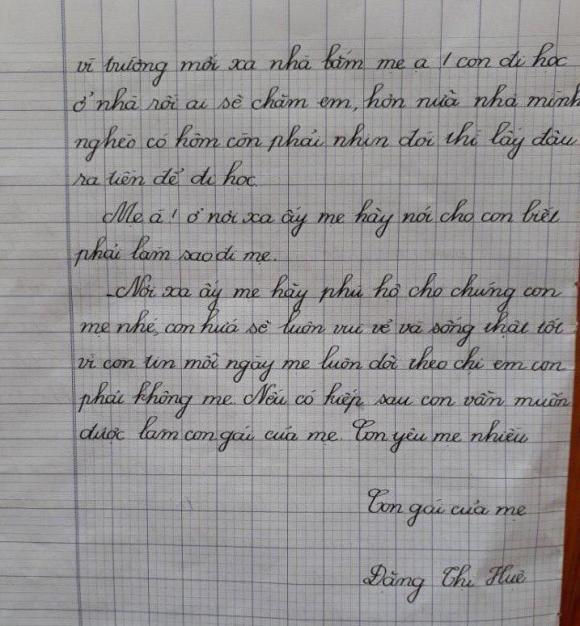 vì trường mới xa nhà lắm mẹ ạ! con đi học
ở nhà rồi ai sẽ chăm em, hơn nữa nhà mình
nghèo có hôm còn phải nhịn đói thì lấy đâu
ra tiền để đi học.
Mẹ à! ở nơi xa ấy mẹ hãy nói cho con biết
phải làm sao đi mẹ.
- Nơi xa ấy mẹ hãy phù hộ cho chúng con
mẹ nhé, con hứa sẽ luôn vui vẻ và sống thật tốt
vì con tin mỗi ngày mẹ luôn dõi theo chị em con
phải không mẹ. Nếu có kiếp sau con vẫn muốn
được làm con gái của mẹ. Con yêu mẹ nhiều
Con gái của mẹ
Đặng Thị Huế